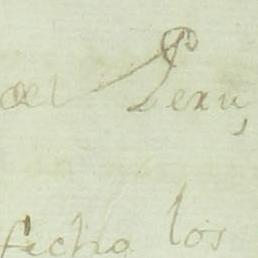 del Peru,
fecho los